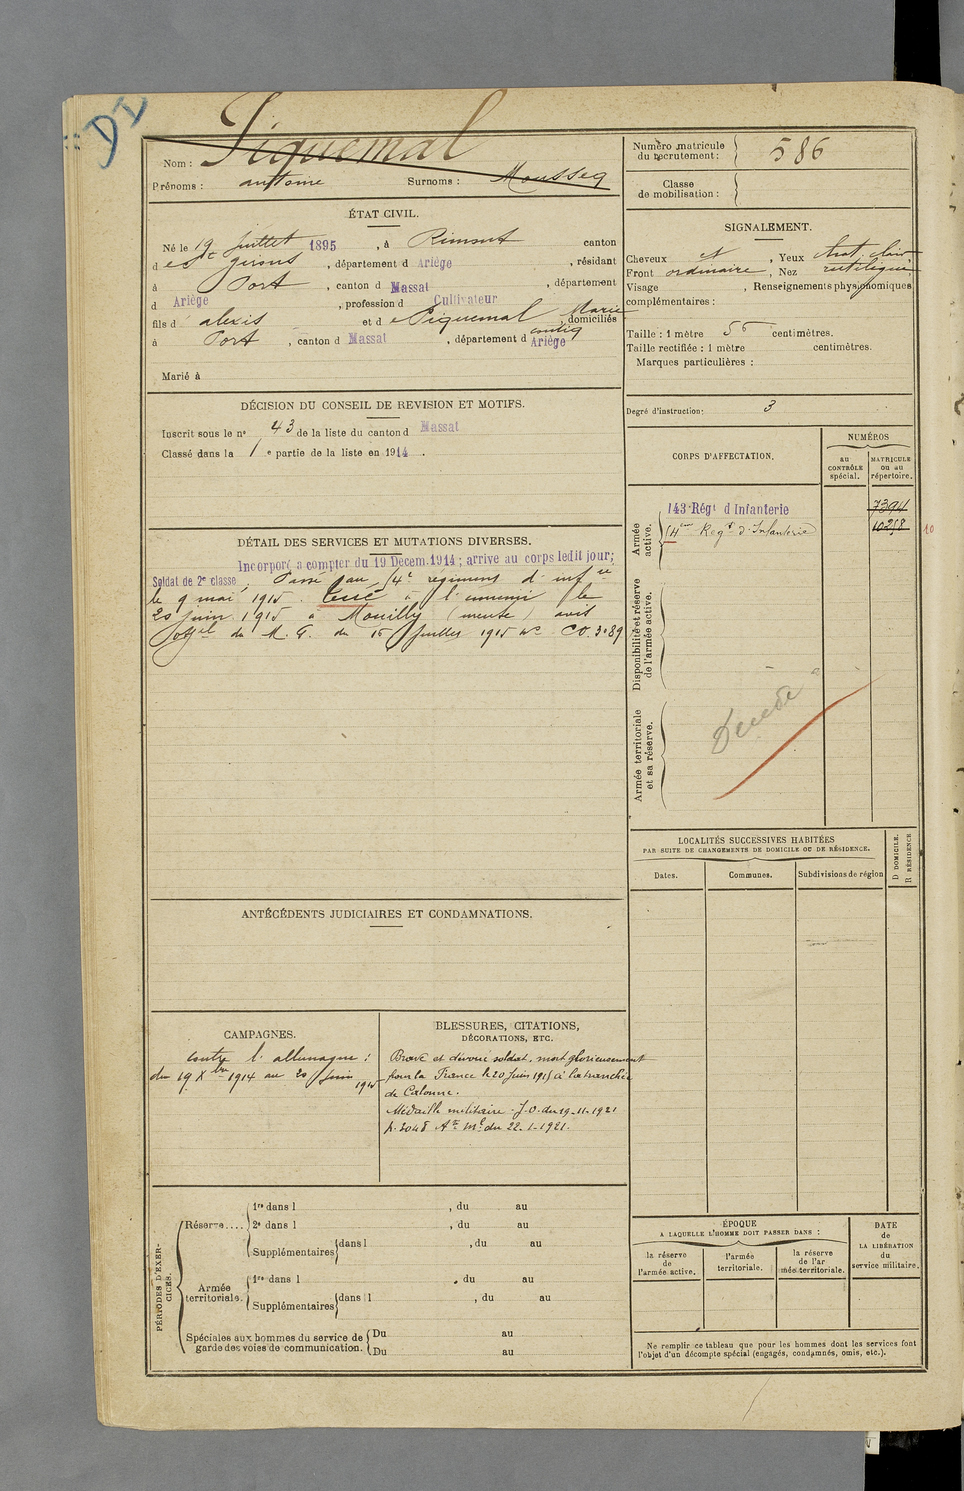 DI
Nom : Piquemal
Prénoms : antoine Surnoms : Mousseq
Numéro matricule
du recrutement : 586
Classe
de mobilisation :
ÉTAT CIVIL.
Né le 19 Juillet 1895, à Rimont canton
d e St Girons, département d Ariège, résidant
à Port, canton d Massat, département
d Ariège, profession d Cultivateur
fils d' alexis et d e Piquemal Marie domiciliés
à Port, canton d Massat, département d Ariège
Marié à
SIGNALEMENT.
Cheveux ct, Yeux clair,
Front ordinaire, Nez rectiligne
Visage , Renseignements physionomiques
complémentaires :
Taille : 1 mètre 56 centimètres.
Taille rectifiée : 1 mètre centimètres.
Marques particulières :
Degré d'instruction : 3
DÉCISION DU CONSEIL DE REVISION ET MOTIFS.
Inscrit sous le nº 43 de la liste du canton d Massat
Classé dans la 1 e partie de la liste en 1914.
CORPS D'AFFECTATION.
NUMÉROS
au
CONTRÔLE
spécial.
MATRICULE
ou au
répertoire.
Armée
active.
143 Régt d'Infanterie 7394
14eme Regt d'Infanterie 10258
10
Disponibilité et réserve
de l'armée active.
Armée territoriale
et sa réserve.
Décédé
DÉTAIL DES SERVICES ET MUTATIONS DIVERSES.
Incorporé a compter du 19 Décem. 1914 ; arrive au corps ledit jour;
Soldat de 2e classe, Passé au 14e régiment d'infie
le 9 mai 1915. tué à l'ennemi le
20 juin 1915 à Mouilly (meuse) avis
offiel du M. G. du 15 Juillet 1915 nº CO. 3089
LOCALITÉS SUCCESSIVES HABITÉES
PAR SUITE DE CHANGEMENTS DE DOMICILE OU DE RÉSIDENCE.
Dates. Communes. Subdivisions de région
D DOMICILE.
R RÉSIDENCE
ANTÉCÉDENTS JUDICIAIRES ET CONDAMNATIONS.
CAMPAGNES.
contre l'allemagne :
du 19 Xbre 1914 au 20 Juin
1915
BLESSURES, CITATIONS,
DÉCORATIONS, ETC.
Brave et dévoué soldat, mort glorieusement
pour la France le 20 Juin 1915 à la tranchée
de Calonne.
Médaille militaire J.O. du 19-11-1921
A té Mel du 22-1-1921.
PÉRIODES D'EXER-
CICES.
Réserve....
1re dans l , du au
2e dans l , du au
Supplémentaires dans l , du au
Armée
territoriale.
1re dans l , du au
Supplémentaires dans l , du au
Spéciales aux hommes du service de
garde des voies de communication.
Du au
Du au
ÉPOQUE
A LAQUELLE L'HOMME DOIT PASSER DANS :
la réserve
de
l'armée active.
l'armée
territoriale.
la réserve
de l'ar
mée territoriale.
DATE
de
LA LIBÉRATION
du
service militaire.
Ne remplir ce tableau que pour les hommes dont les services font
l'objet d'un décompte spécial (engagés, condamnés, omis, etc.).